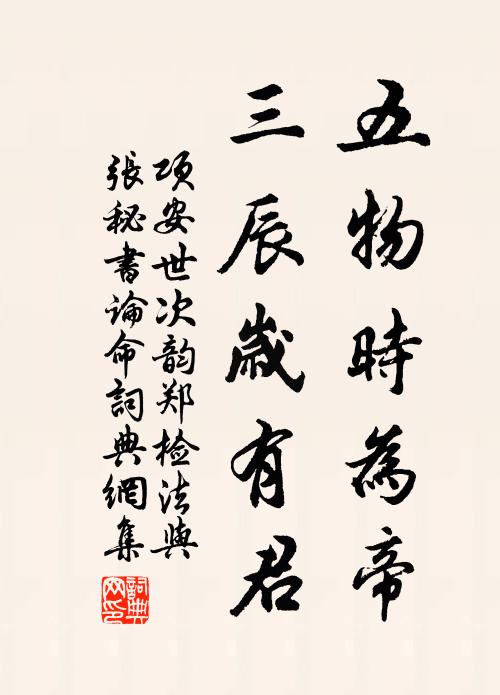 五物時為帝
三辰歲有君
项安世次韵郑检法與
張秘書論命詞典網集
詞典網印